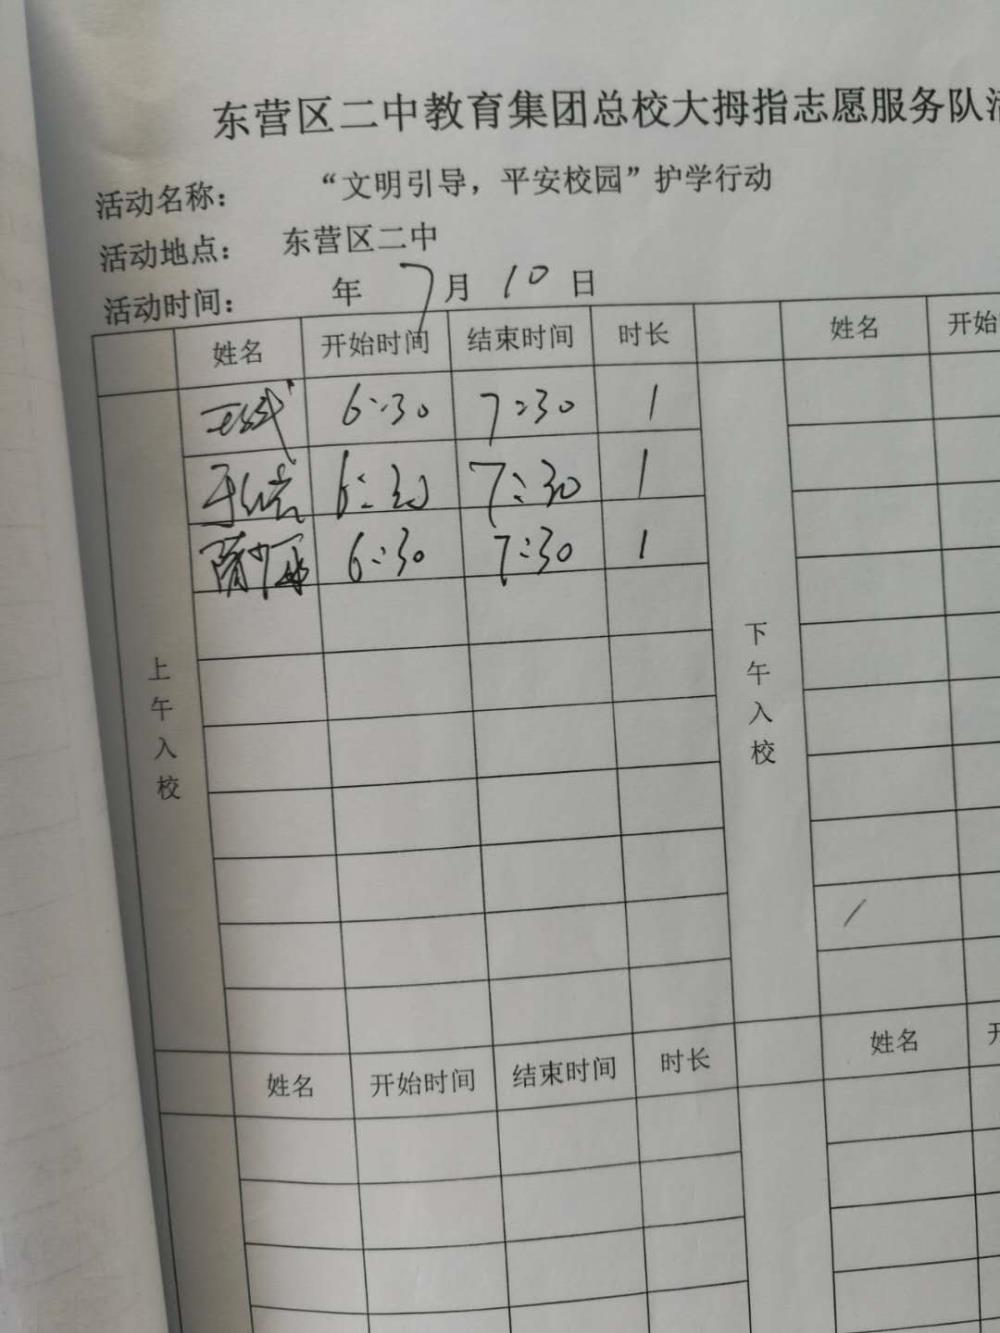 东营区二中教育集团总校大拇指志愿服务队
活动名称： “文明引导，平安校园”护学行动
活动地点： 东营区二中
活动时间： 年 7月 10 日
姓名 开始时间 结束时间 时长 姓名 开始
6:30 7:30 1
6:30 7:30 1
6:30 7:30 1
上午入校
下午入校
姓名 开始时间 结束时间 时长 姓名